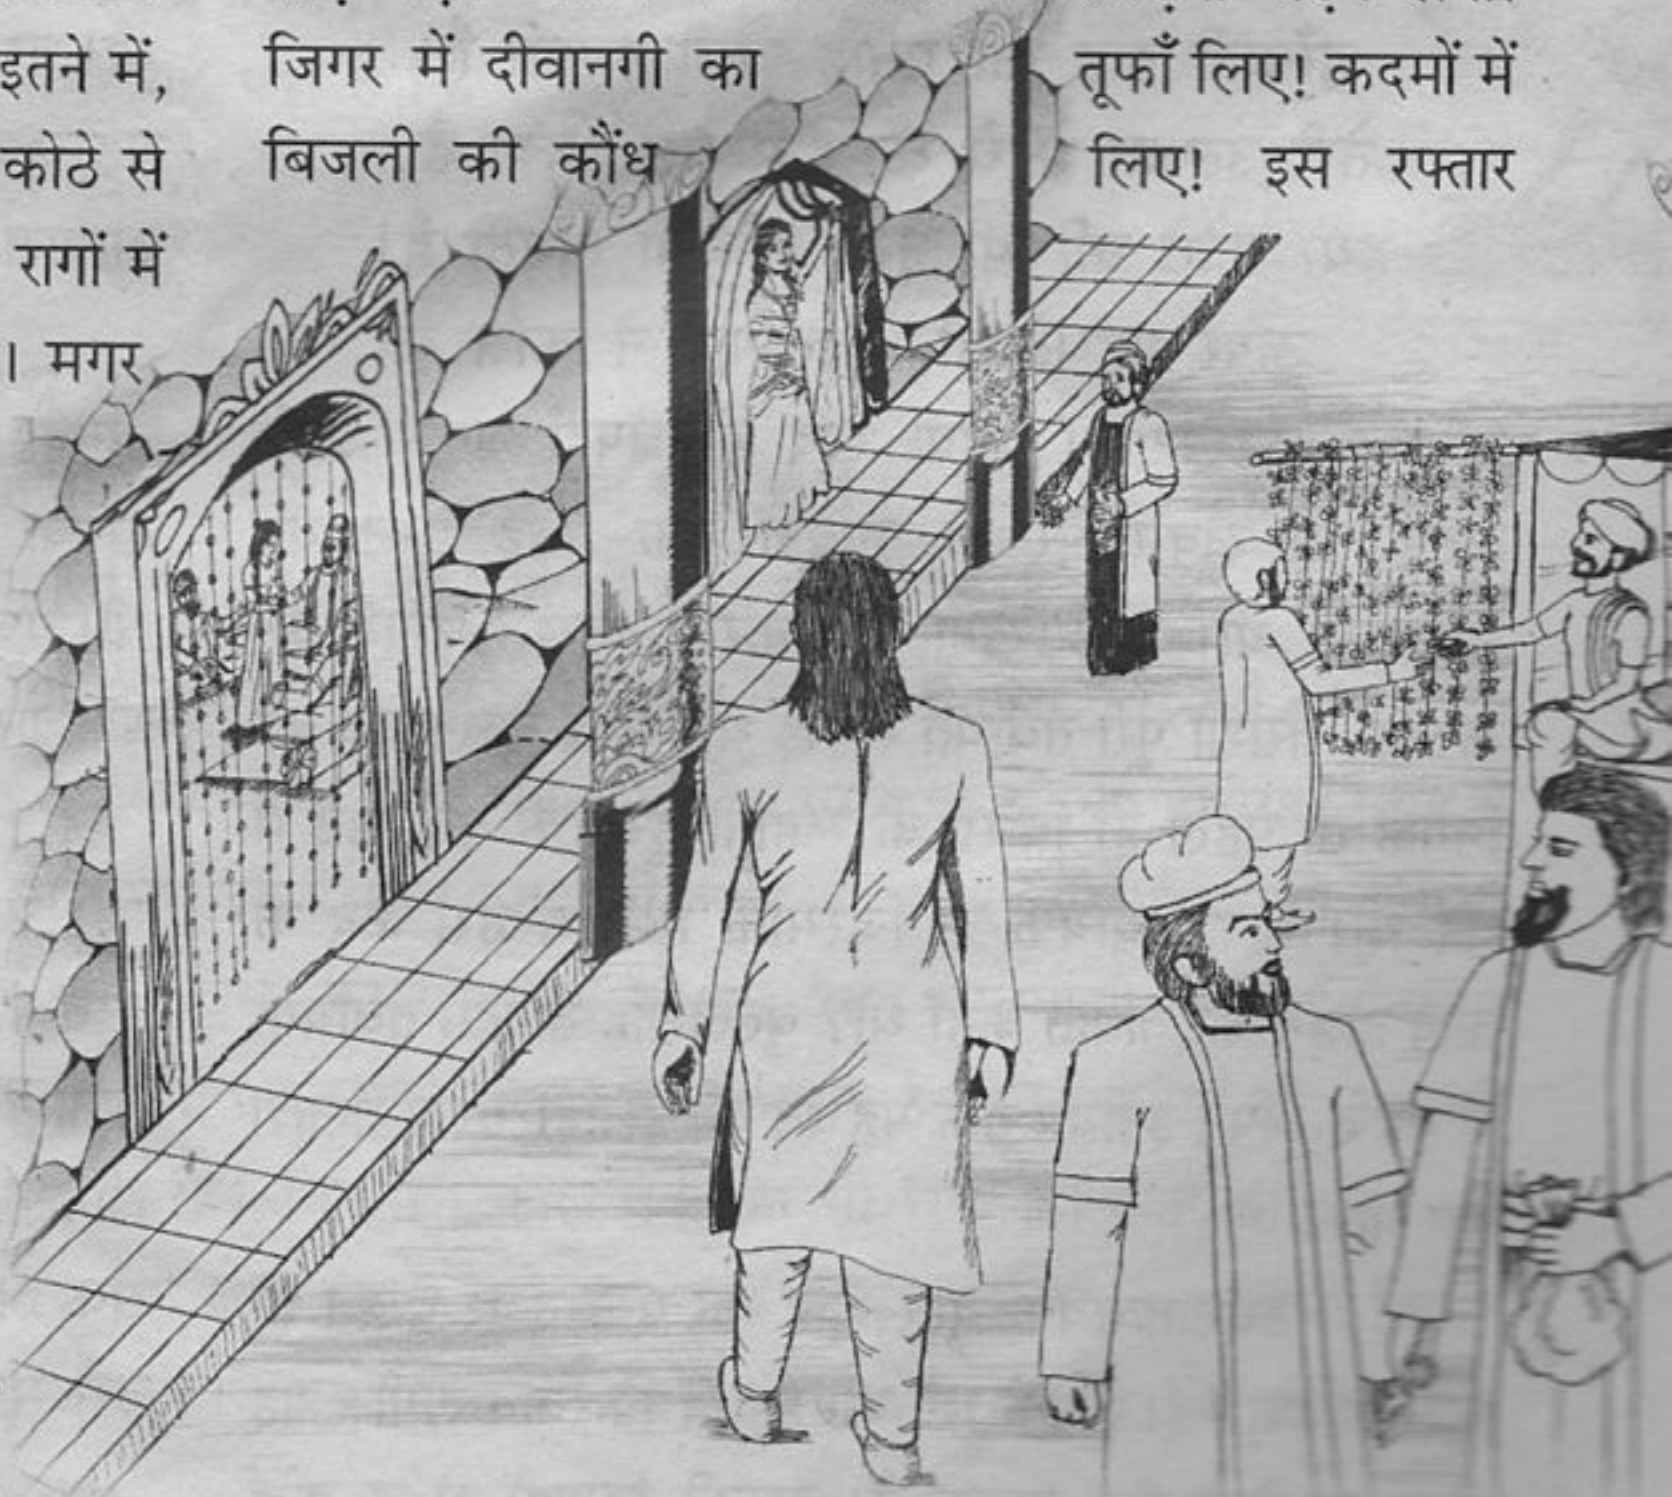 इतने में, जिगर में दीवानगी का तूफाँ लिए! कदमों में
कोठे से बिजली की कौंध लिए! इस रफ्तार
रागों में
। मगर